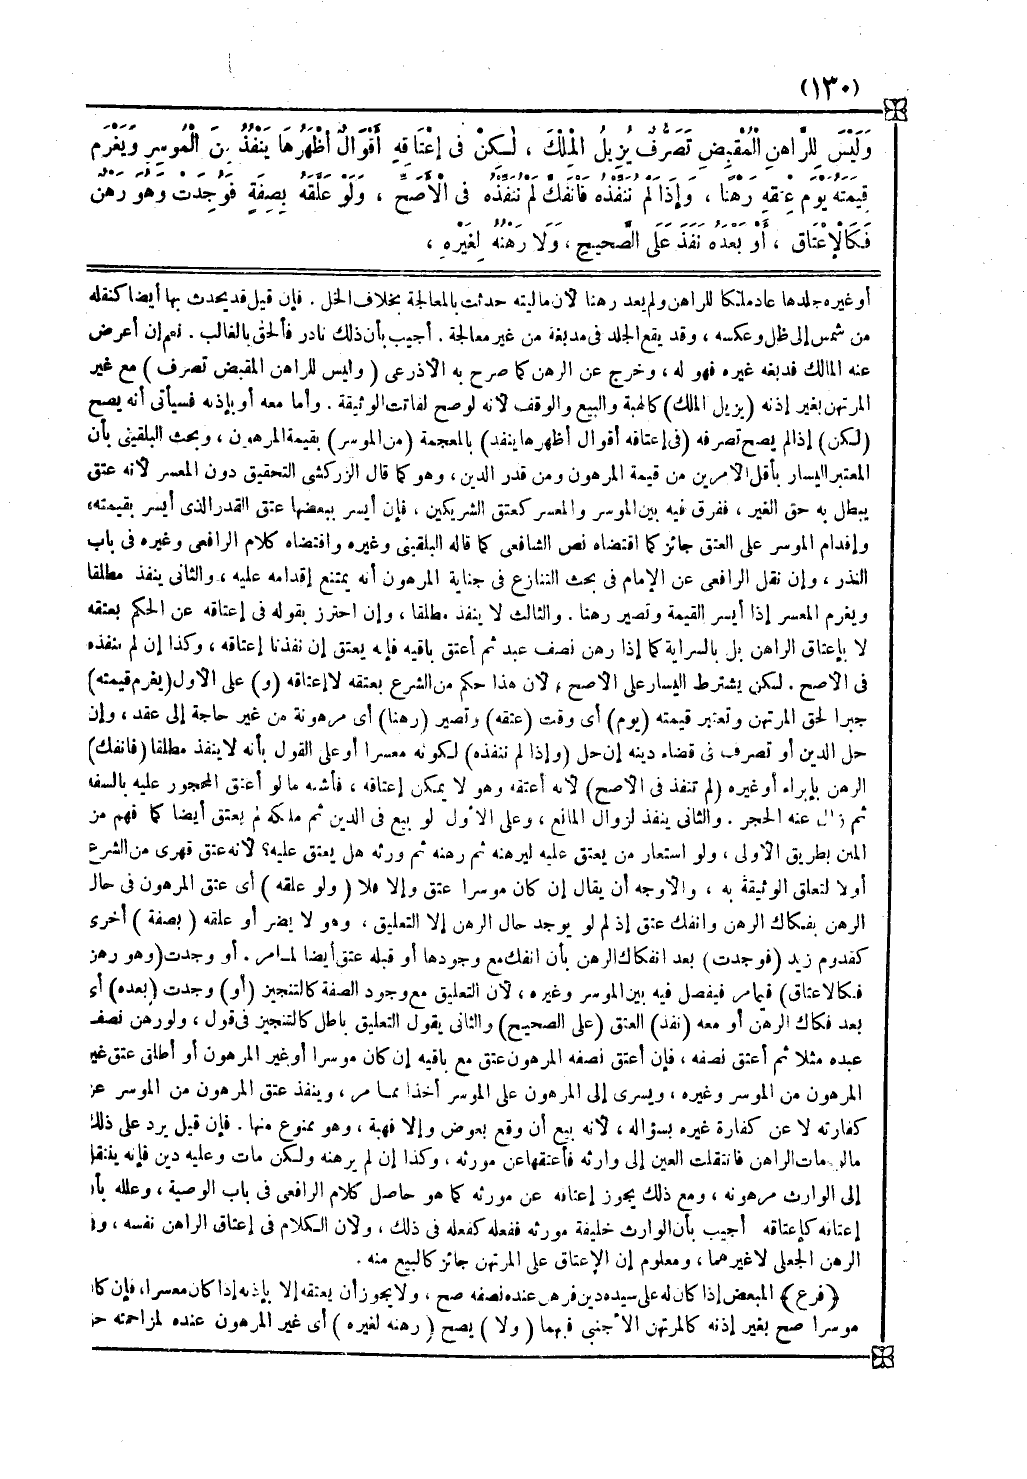 (١٣٠)
وَلَيْسَ لِلرَّاهِنِ الْمُقْبِضِ تَصَرُّفٌ يُزِيلُ الْمِلْكَ ، لٰكِنْ فِى إِعْتَاقِهِ أَقْوَالٌ أَظْهَرُهَا يَنْفُذُ مِنَ الْمُوسِرِ وَيَغْرَمُ
قِيمَتَهُ يَوْمَ عِتْقِهِ رَهْنًا ، وَإِذَا لَمْ نُنَفِّذْهُ فَانْفَكَّ لَمْ نُنَفِّذْهُ فِى الْأَصَحِّ ، وَلَوْ عَلَّقَهُ بِصِفَةٍ فَوُجِدَتْ وَهُوَ رَهْنٌ
فَكَالْإِعْتَاقِ ، أَوْ بَعْدَهُ نَفَذَ عَلَى الصَّحِيحِ ، وَلَا رَهْنُهُ لِغَيْرِهِ ،
أو غيره جلدها عاد ملكا للراهن ولم يعد رهنا لأن ماليته حدثت بالمعالجة بخلاف الخل . فإن قيل قد يحدث بها أيضا كنقله
من شمس إلى ظل وعكسه ، وقد يقع الجلد فى مدبغة من غير معالجة . أجيب بأن ذلك نادر فألحق بالغالب . نعم إن أعرض
عنه المالك فدبغه غيره فهو له ، وخرج عن الرهن كما صرح به الأذرعى ( وليس للراهن المقبض تصرف ) مع غير
المرتهن بغير إذنه (يزيل الملك) كالهبة والبيع والوقف لأنه لو صح لفاتت الوثيقة . وأما معه أو بإذنه فسيأتى أنه يصح
(لكن) إذا لم يصح تصرفه (فى إعتاقه أقوال أظهرها ينفذ) بالمعجمة (من الموسر) بقيمة المرهون ، وبحث البلقينى بأن
المعتبر اليسار بأقل الأمرين من قيمة المرهون ومن قدر الدين ، وهو كما قال الزركشى التحقيق دون المعسر لأنه عتق
يبطل به حق الغير ، ففرق فيه بين الموسر والمعسر كعتق الشريكين ، فإن أيسر ببعضها عتق القدر الذى أيسر بقيمته ،
وإقدام الموسر على العتق جائز كما اقتضاه نص الشافعى كما قاله البلقينى وغيره واقتضاه كلام الرافعى وغيره فى باب
النذر ، وإن نقل الرافعى عن الإمام فى بحث التنازع فى جناية المرهون أنه يمتنع إقدامه عليه ، والثانى ينفذ مطلقا
ويغرم المعسر إذا أيسر القيمة وتصير رهنا . والثالث لا ينفذ مطلقا ، وإن احترز بقوله فى إعتاقه عن الحكم بعتقه
لا بإعتاق الراهن بل بالسراية كما إذا رهن نصف عبد ثم أعتق باقيه فإنه يعتق إن نفذنا إعتاقه ، وكذا إن لم ننفذه
فى الأصح . لكن يشترط اليسار على الأصح ، لأن هذا حكم من الشرع بعتقه لا إعتاقه (و) على الأول (يغرم قيمته)
جبرا لحق المرتهن وتعتبر قيمته (يوم) أى وقت (عتقه) وتصير (رهنا) أى مرهونة من غير حاجة إلى عقد ، وإن
حل الدين أو تصرف فى قضاء دينه إن حل (وإذا لم ننفذه) لكونه معسرا أو على القول بأنه لا ينفذ مطلقا (فانفك)
الرهن بإبراء أو غيره (لم ننفذه فى الأصح) لأنه أعتقه وهو لا يمكن إعتاقه ، فأشبه ما لو أعتق المحجور عليه بالسفه
ثم زال عنه الحجر . والثانى ينفذ لزوال المانع ، وعلى الأول لو بيع فى الدين ثم ملكه لم يعتق أيضا كما فهم من
المتن بطريق الأولى ، ولو استعار من يعتق عليه ليرهنه ثم رهنه ثم ورثه هل يعتق عليه؟ لأنه عتق قهرى من الشرع
أولا لتعلق الوثيقة به ، والأوجه أن يقال إن كان موسرا عتق وإلا فلا ( ولو علقه ) أى عتق المرهون فى حال
الرهن بفكاك الرهن وانفك عتق إذ لم يوجد حال الرهن إلا التعليق ، وهو لا يضر أو علقه ( بصفة ) أخرى
كقدوم زيد (فوجدت) بعد انفكاك الرهن بأن انفك مع وجودها أو قبله عتق أيضا لما مر . أو وجدت (وهو رهن
فكالاعتاق) فيما مر فيفصل فيه بين الموسر وغيره ، لأن التعليق مع وجود الصفة كالتنجيز (أو) وجدت (بعده) أى
بعد فكاك الرهن أو معه (نفذ) العتق (على الصحيح) والثانى يقول التعليق باطل كالتنجيز فى قول ، ولو رهن نصف
عبده مثلا ثم أعتق نصفه ، فإن أعتق نصفه المرهون عتق مع باقيه إن كان موسرا أو غير المرهون أو أطلق عتق غير
المرهون من الموسر وغيره ، ويسرى إلى المرهون على الموسر أخذا مما مر ، وينفذ عتق المرهون من الموسر عن
كفارته لا عن كفارة غيره بسؤاله ، لأنه بيع أن وقع بعوض وإلا فهبة ، وهو ممنوع منها . فإن قيل يرد على ذلك
ما لو مات الراهن فانتقلت العين إلى وارثه فأعتقها عن مورثه ، وكذا إن لم يرهنه ولكن مات وعليه دين فإنه ينتقل
إلى الوارث مرهونه ، ومع ذلك يجوز إعتاقه عن مورثه كما هو حاصل كلام الرافعى فى باب الوصية ، وعلله بأن
إعتاقه كإعتاقه أجيب بأن الوارث خليفة مورثه ففعله كفعله فى ذلك ، ولأن الكلام فى إعتاق الراهن نفسه ، وفى
الرهن الجعلى لا غيرهما ، ومعلوم إن الإعتاق على المرتهن جائز كالبيع منه .
﴿فرع﴾ المبعض إذا كان له على سيده دين فرهن عنده نصفه صح ، ولا يجوز أن يعتقه إلا بإذنه إذا كان معسرا ، فإن كان
موسرا صح بغير إذنه كالمرتهن الأجنبى فيهما ( ولا ) يصح ( رهنه لغيره ) أى غير المرهون عنده لمزاحمته حق